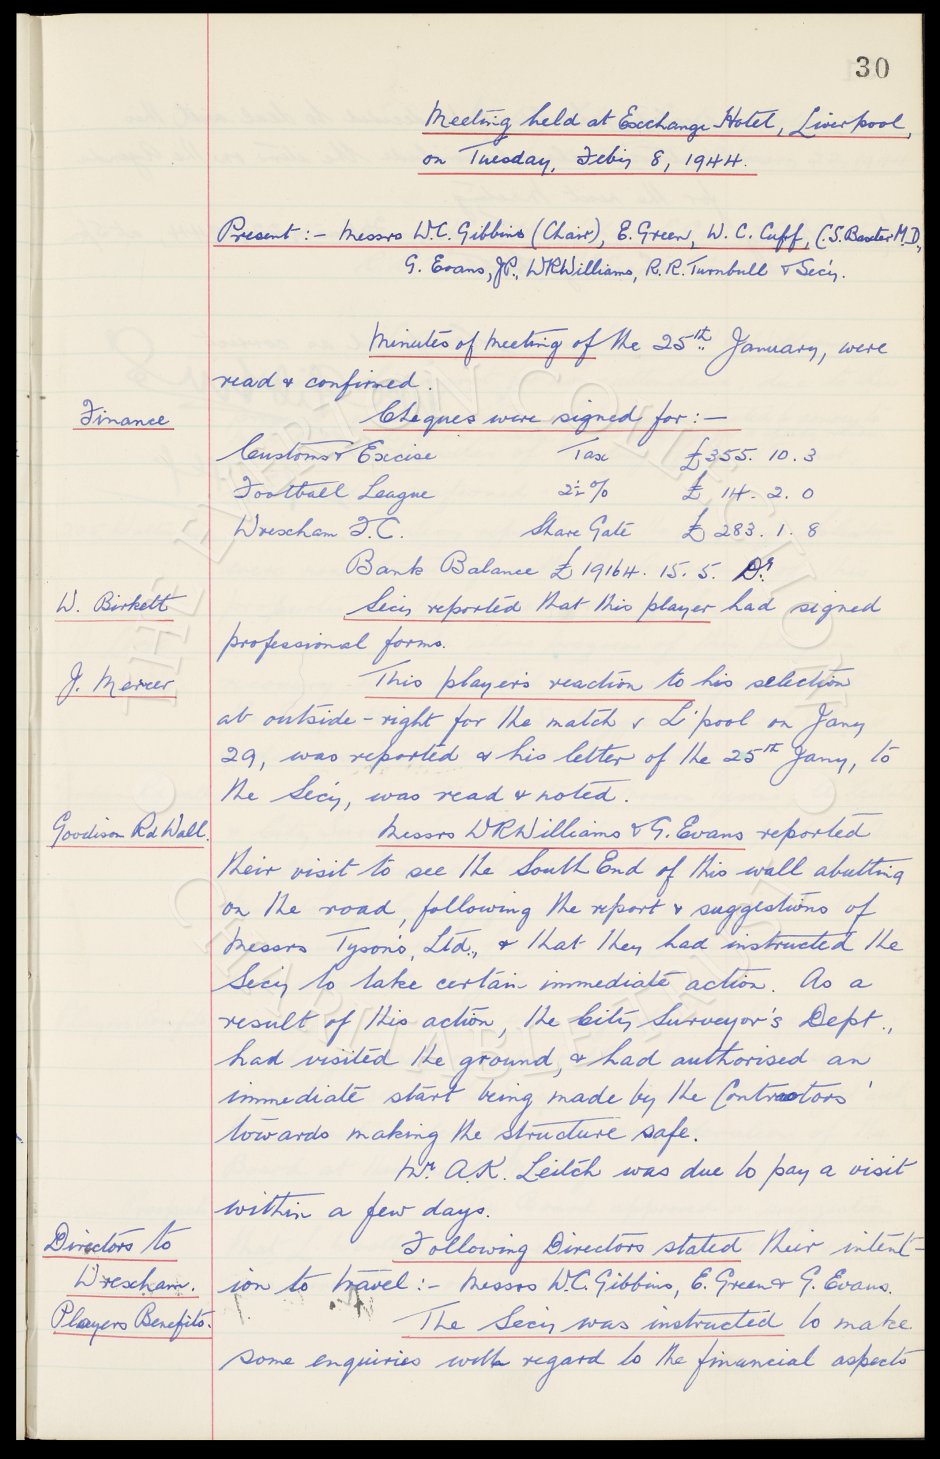 30
Meeting held at Exchange Hotel, Liverpool,
on Tuesday, Feb'y 8, 1944.
Present :- Messrs W.C. Gibbins (Chair), E. Green, W. C. Cuff, C.S. Baxter M.D.,
G. Evans, J.P., W R Williams, R.R. Turnbull & Sec'y.
Minutes of meeting of the 25th January, were
read & confirmed.
Finance Cheques were signed for :-
Customs & Excise Tax £355. 10. 3
Football League 2½% £ 14. 2. 0
Wrexham F.C. Share Gate £ 283. 1. 8
Bank Balance £19164. 15. 5. Dr
W. Birkett Secy reported that this player had signed
professional forms.
J. Mercer This player's reaction to his selection
at outside-right for the match v L'pool on Jany
29, was reported & his letter of the 25th Jany, to
the Secy, was read & noted.
Goodison Rd Wall. Messrs W R Williams & G. Evans reported
their visit to see the South End of this wall abutting
on the road, following the report & suggestions of
Messrs Tyson's, Ltd., & that they had instructed the
Secy to take certain immediate action. As a
result of this action, the City Surveyor's Dept.,
had visited the ground, & had authorised an
immediate start being made by the Contractors'
towards making the structure safe.
Mr. A.K. Leitch was due to pay a visit
within a few days.
Directors to Following Directors stated their intent-
Wrexham. ion to travel :- Messrs W.C. Gibbins, E. Green & G. Evans.
Players Benefits. The Secy was instructed to make
some enquiries with regard to the financial aspects
THE EVERTON COLLECTION
CHARITABLE TRUST